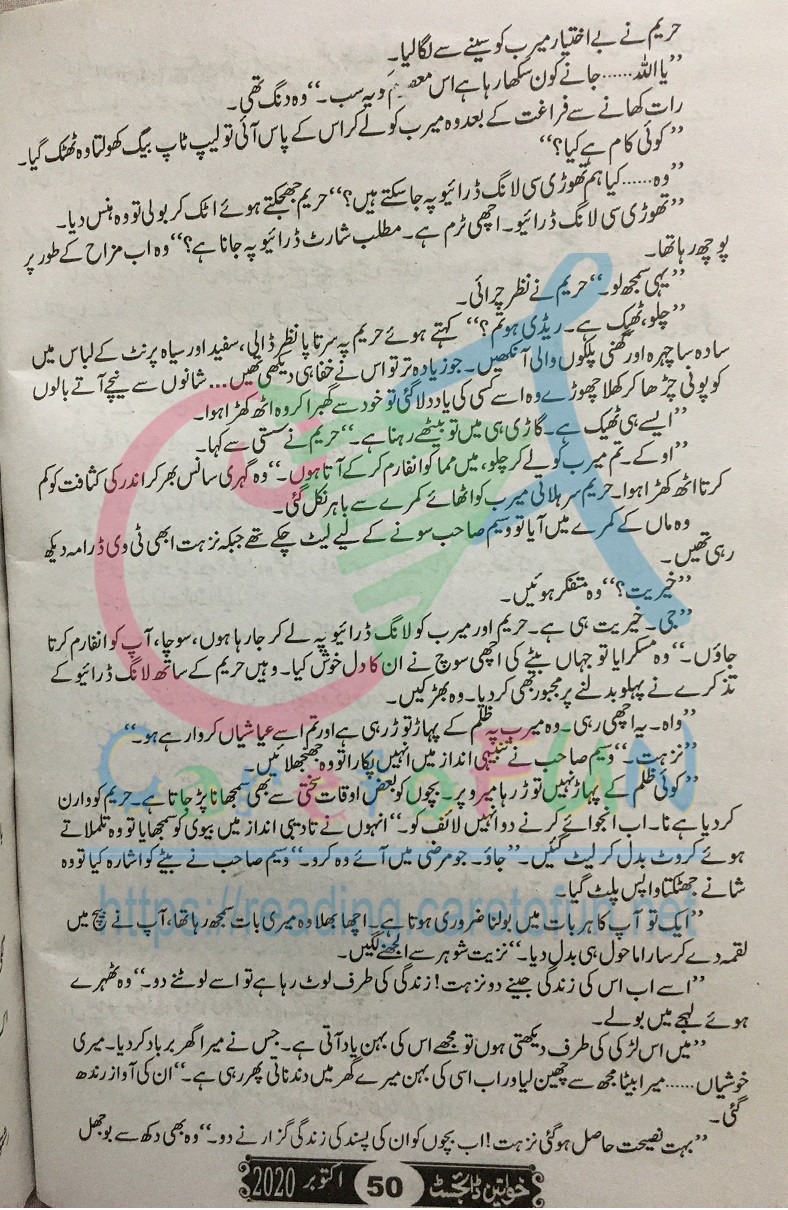 حریم نے بے اختیار میرب کو سینے سے لگا لیا۔
”یا اللہ...... جانے کون سکھا رہا ہے اس معصوم کو یہ سب۔“ وہ دنگ تھی۔
رات کھانے سے فراغت کے بعد وہ میرب کو لے کر اس کے پاس آئی تو لیپ ٹاپ بیگ کھولتا وہ ٹھٹک گیا۔
”کوئی کام ہے کیا؟“
”وہ...... کیا ہم تھوڑی سی لانگ ڈرائیو پہ جا سکتے ہیں؟“ حریم جھجکتے ہوئے اٹک کر بولی تو وہ ہنس دیا۔
”تھوڑی سی لانگ ڈرائیو۔ اچھی ٹرم ہے۔ مطلب شارٹ ڈرائیو پہ جانا ہے؟“ وہ اب مزاح کے طور پر
پوچھ رہا تھا۔
”یہی سمجھ لو۔“ حریم نے نظر چرائی۔
”چلو، ٹھیک ہے۔ ریڈی ہو تم؟“ کہتے ہوئے حریم پہ سرتاپا نظر ڈالی، سفید اور سیاہ پرنٹ کے لباس میں
سادہ سا چہرہ اور گھنی پلکوں والی آنکھیں۔ جو زیادہ تر تو اس نے خفا ہی دیکھی تھیں... شانوں سے نیچے آتے بالوں
کو پونی چڑھا کر کھلا چھوڑے وہ اسے کسی کی یاد دلا گئی تو خود سے گھبرا کر وہ اٹھ کھڑا ہوا۔
”ایسے ہی ٹھیک ہے۔ گاڑی ہی میں تو بیٹھے رہنا ہے۔“ حریم نے سستی سے کہا۔
”اوکے۔ تم میرب کو لے کر چلو، میں مما کو انفارم کر کے آتا ہوں۔“ وہ گہری سانس بھر کر اندر کی کثافت کو کم
کرتا اٹھ کھڑا ہوا۔ حریم سر ہلاتی میرب کو اٹھائے کمرے سے باہر نکل گئی۔
وہ ماں کے کمرے میں آیا تو وسیم صاحب سونے کے لیے لیٹ چکے تھے جبکہ نزہت ابھی ٹی وی ڈرامہ دیکھ
رہی تھیں۔
”خیریت؟“ وہ متفکر ہوئیں۔
”جی۔ خیریت ہی ہے۔ حریم اور میرب کو لانگ ڈرائیو پہ لے کر جا رہا ہوں، سوچا، آپ کو انفارم کرتا
جاؤں۔“ وہ مسکرایا تو جہاں بیٹے کی اچھی سوچ نے ان کا دل خوش کیا۔ وہیں حریم کے ساتھ لانگ ڈرائیو کے
تذکرے نے پہلو بدلنے پر مجبور بھی کر دیا۔ وہ بھڑکیں۔
”واہ۔ یہ اچھی رہی۔ وہ میرب پہ ظلم کے پہاڑ توڑ رہی ہے اور تم اسے عیاشیاں کروا رہے ہو۔“
”نزہت۔“ وسیم صاحب نے تنبیہی انداز میں انہیں پکارا تو وہ جھنجھلائیں۔
”کوئی ظلم کے پہاڑ نہیں توڑ رہا میرو پر۔ بچوں کو بعض اوقات سختی سے بھی سمجھانا پڑ جاتا ہے۔ حریم کو وارن
کر دیا ہے نا۔ اب انجوائے کرنے دو انہیں لائف کو۔“ انہوں نے تادیبی انداز میں بیوی کو سمجھایا تو وہ تلملاتے
ہوئے کروٹ بدل کر لیٹ گئیں۔ ”جاؤ۔ جو مرضی میں آئے وہ کرو۔“ وسیم صاحب نے بیٹے کو اشارہ کیا تو وہ
شانے جھٹکتا واپس پلٹ گیا۔
”ایک تو آپ کا ہر بات میں بولنا ضروری ہوتا ہے۔ اچھا بھلا وہ میری بات سمجھ رہا تھا، آپ نے بیچ میں
لقمہ دے کر سارا ماحول ہی بدل دیا۔“ نزہت شوہر سے الجھنے لگیں۔
”اسے اب اس کی زندگی جینے دو نزہت! زندگی کی طرف لوٹ رہا ہے تو اسے لوٹنے دو۔“ وہ ٹھہرے
ہوئے لہجے میں بولے۔
”میں اس لڑکی کی طرف دیکھتی ہوں تو مجھے اس کی بہن یاد آتی ہے۔ جس نے میرا گھر برباد کر دیا۔ میری
خوشیاں...... میرا بیٹا مجھ سے چھین لیا اور اب اسی کی بہن میرے گھر میں دندناتی پھر رہی ہے۔“ ان کی آواز رندھ
گئی۔
”بہت نصیحت حاصل ہو گئی نزہت! اب بچوں کو ان کی پسند کی زندگی گزارنے دو۔“ وہ بھی دکھ سے بوجھل
خواتین ڈائجسٹ 50 اکتوبر 2020
CaretoFUN
https://reading.caretofun.net